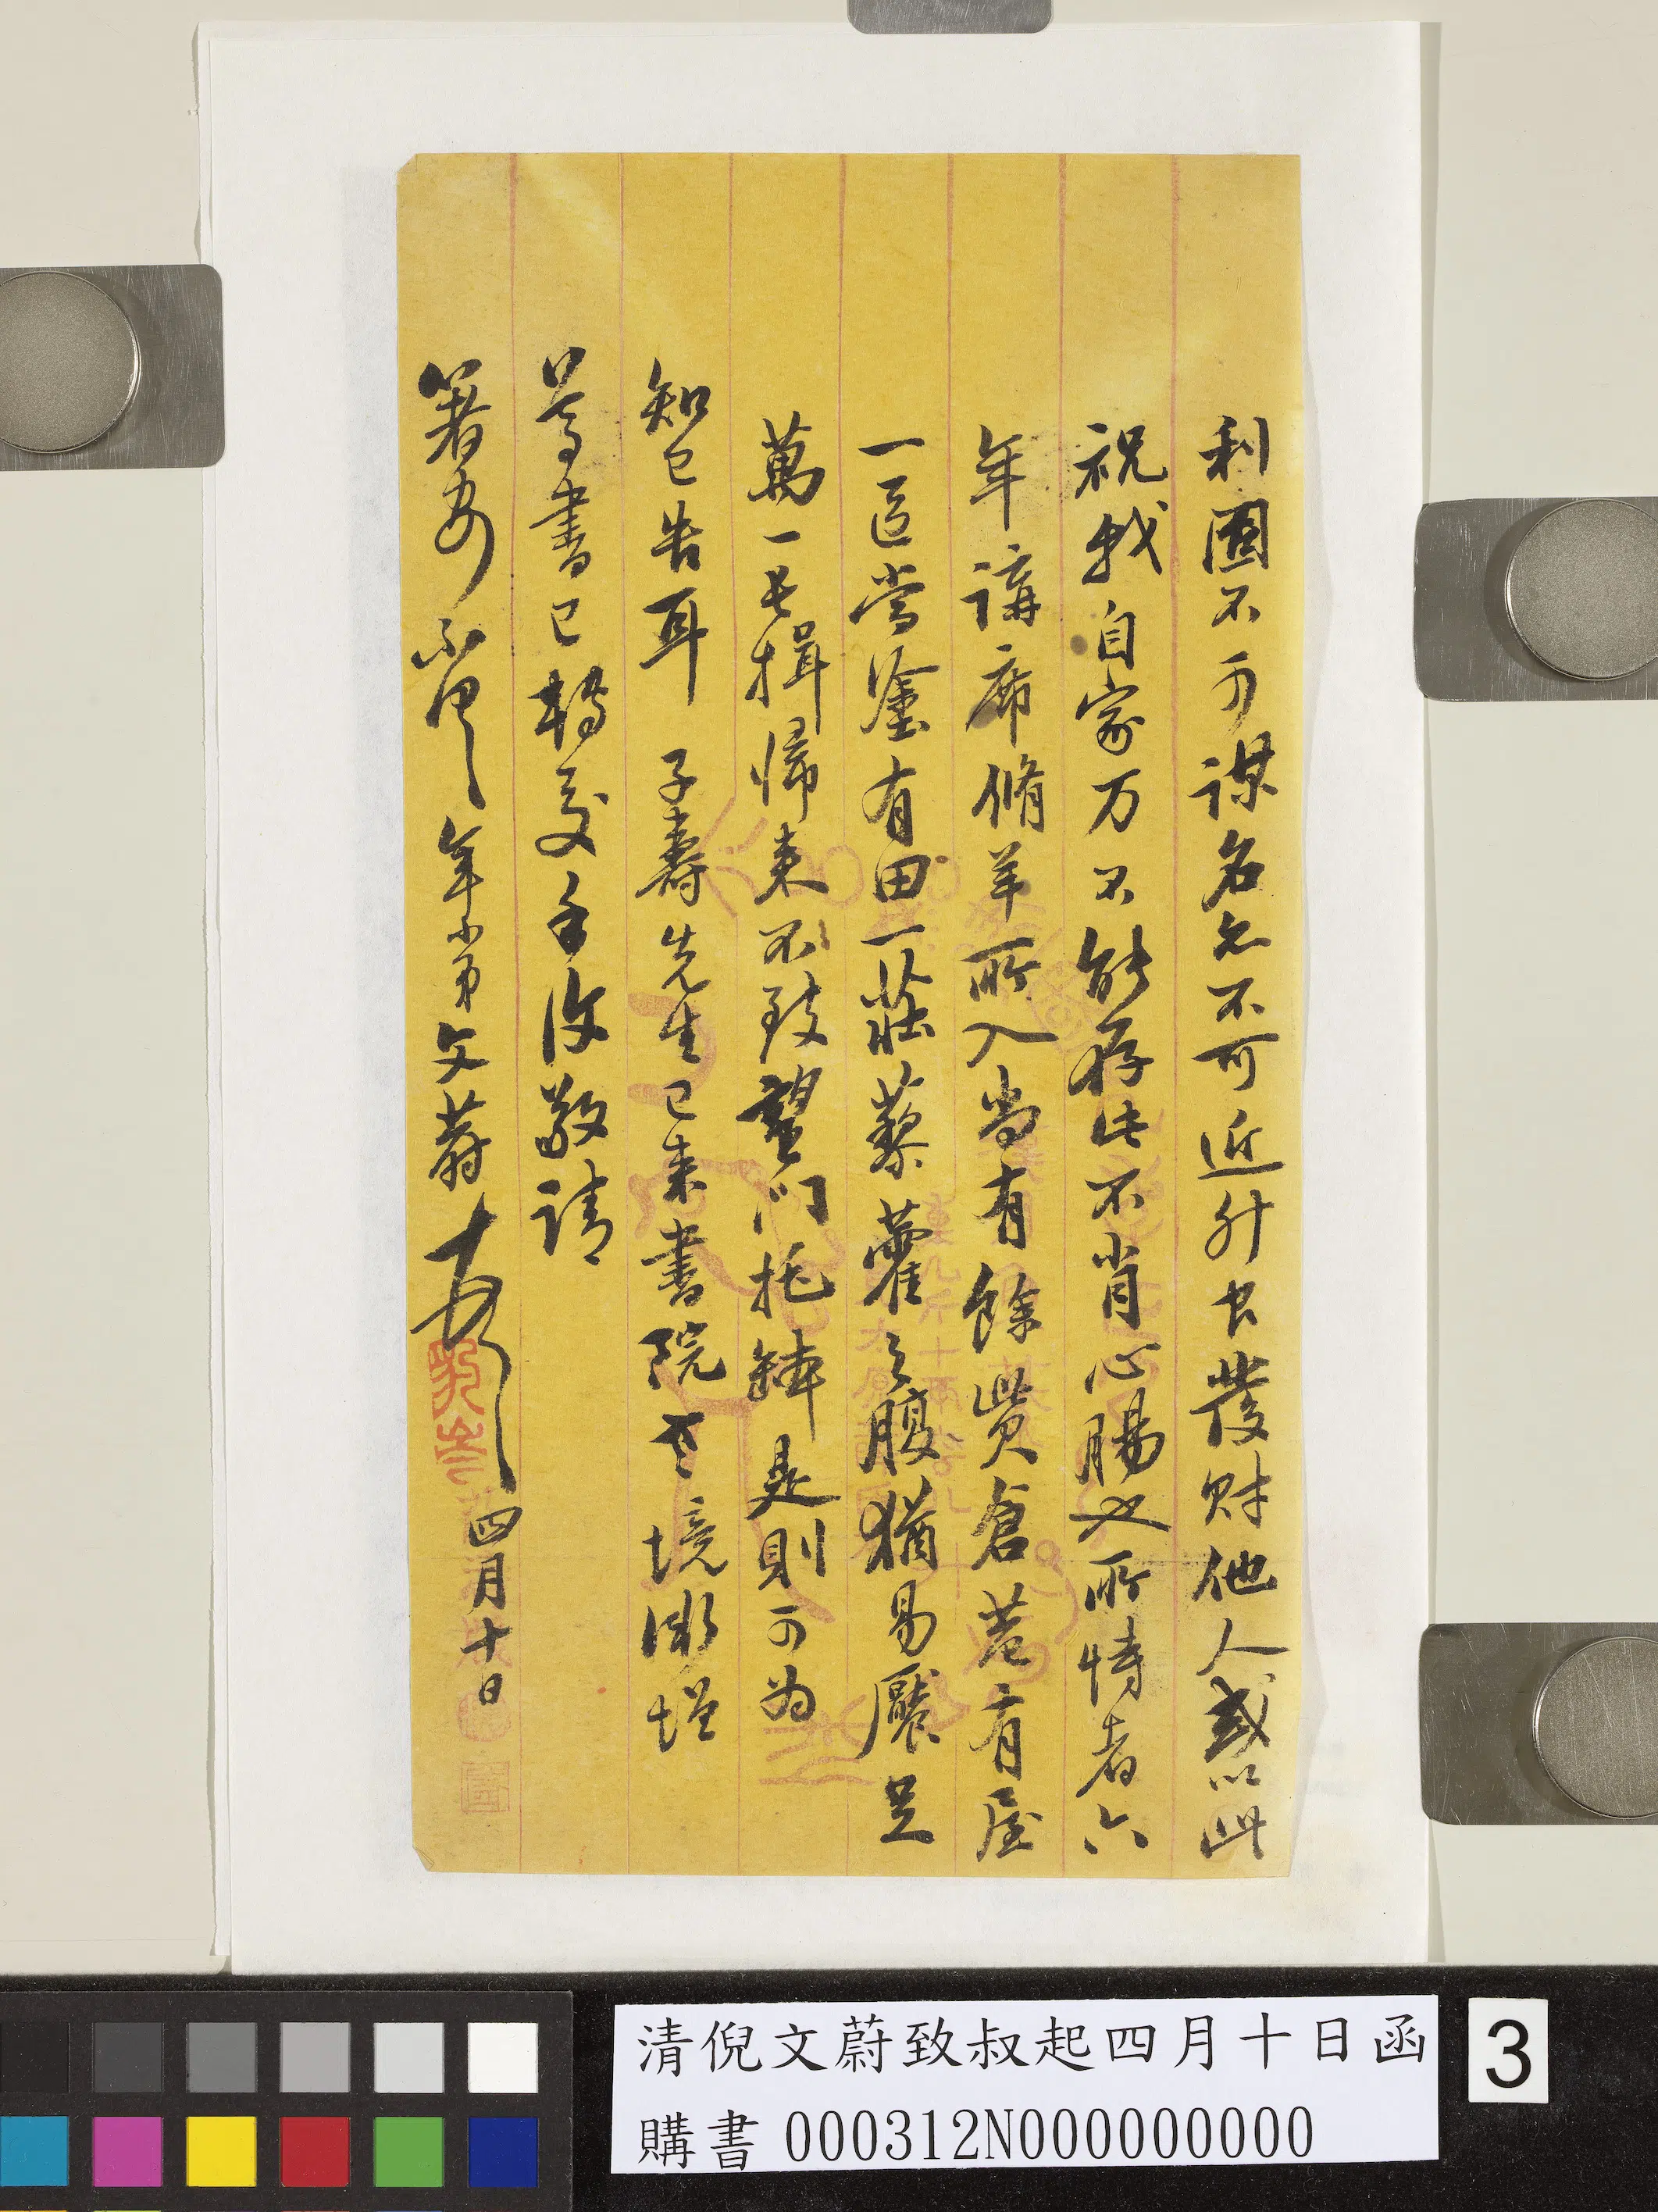 利固不可謀名亦不可近升官發財他人或以此
祝我自家万不能存此不肖心腸也所恃者六
年講席脩羊所入尚有餘貲倉巷有屋
一區當塗有田一莊藜藿之腹猶易饜足
萬一長揖歸來不致望門托鉢是則可為
知己告耳 子壽先生已来書院老境漸增
等書已轉交手復敬請
箸安不具 年小弟文蔚頓 四月十日
清倪文蔚致叔起四月十日函
購書 000312N000000000
3